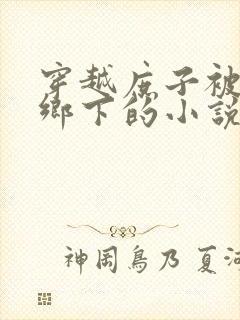 穿越庶子被
鄉下的小說
神岡鳥乃 夏河